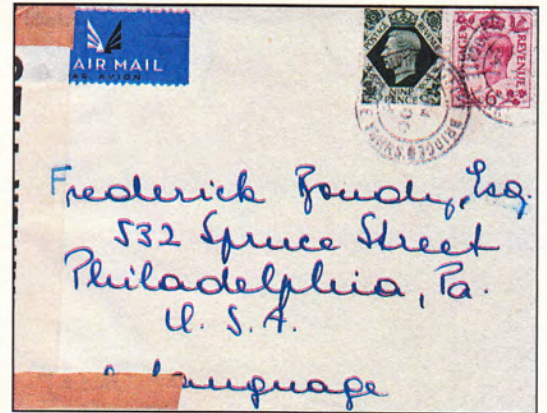 AIR MAIL
PAR AVION
POSTAGE REVENUE
NINE
PENCE
REVENUE
6D
Frederick Bondy, Esq.
532 Spruce Street
Philadelphia, Pa.
U. S. A.
Language